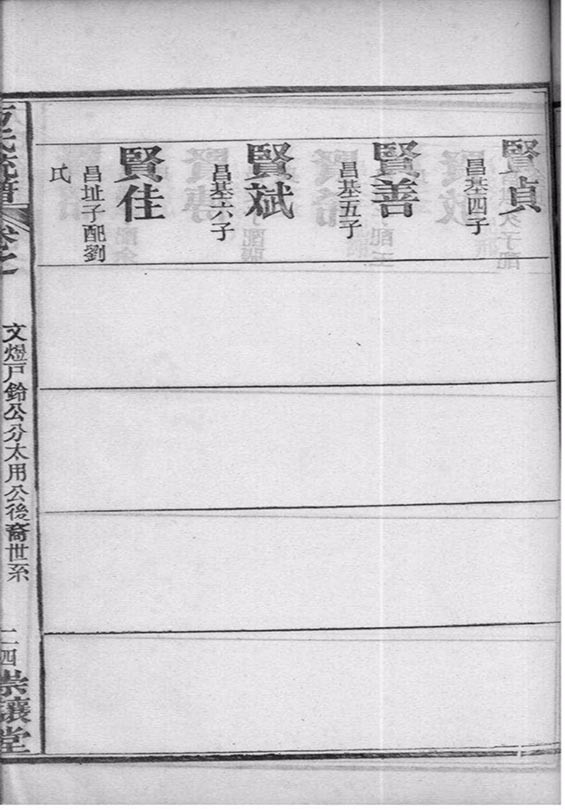 賢貞
昌基四子
賢善
昌基五子
賢斌
昌基六子
賢佳
昌址子配劉
氏
氏統譜
文煜戸鈴公分太用公後裔世系
二四
崇讓堂